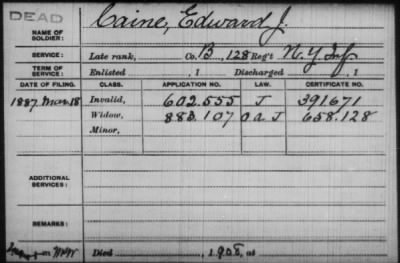 DEAD
NAME OF SOLDIER: Caine, Edward J.
SERVICE: Late rank, Co. B, 128 Reg't N.Y. Inf
TERM OF SERVICE: Enlisted , 1 Discharged , 1
DATE OF FILING. CLASS. APPLICATION NO. LAW. CERTIFICATE NO.
1887. Mar. 18 Invalid, 602.555 J 391671
Widow, 883.107 J 658.128
Minor,
ADDITIONAL SERVICES:
REMARKS:
Died , 1908, at